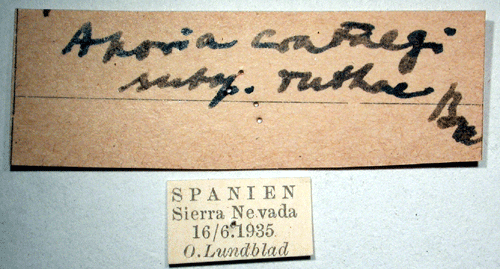 Aporia crataegi
subsp. ruthae
Bn
SPANIEN
Sierra Nevada
16/6.1935
O. Lundblad